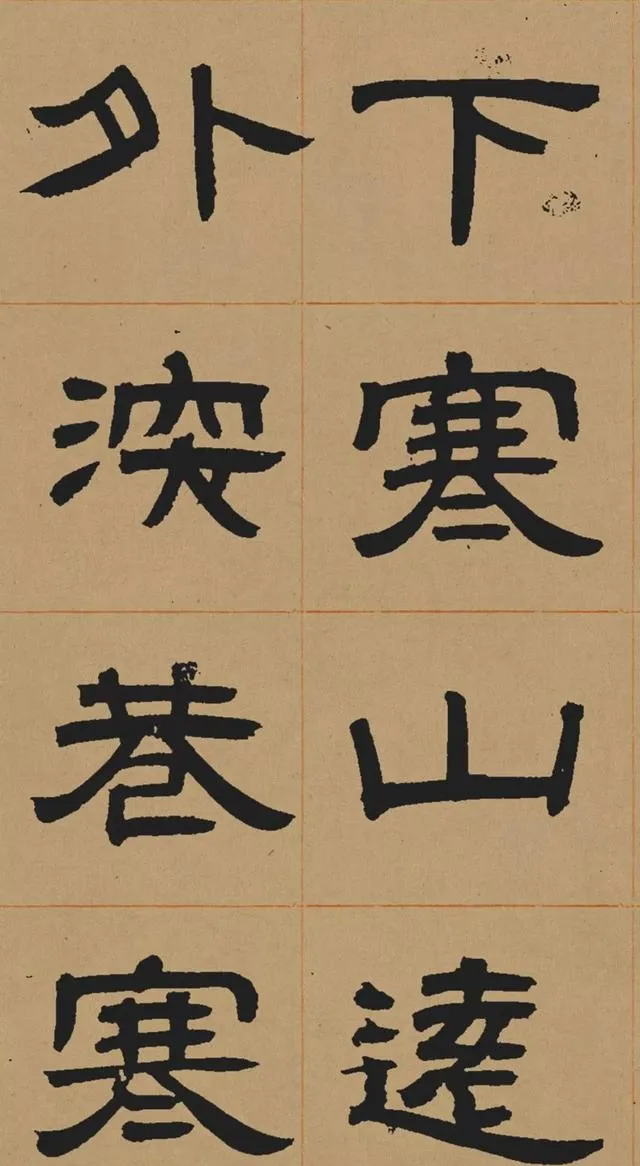 下寒山遠
外深巷寒